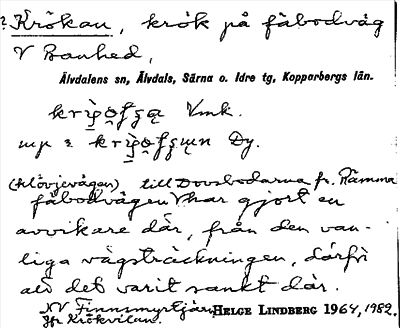 ? Krökan, krök på fäbodväg
V Banhed,
Älvdalens sn, Älvdals, Särna o. Idre tg, Kopparbergs län.
Vmk.
Dy.
(klövjevägen) till Dovsbodarna fr. Rämma
fäbodvägen har gjort en
avvikare där, från den van-
liga vägsträckningen, därför
att det varit sankt där.
NV Finnsmyrtjärn, HELGE LINDBERG 1964, 1982.
Jfr Krökvilan.